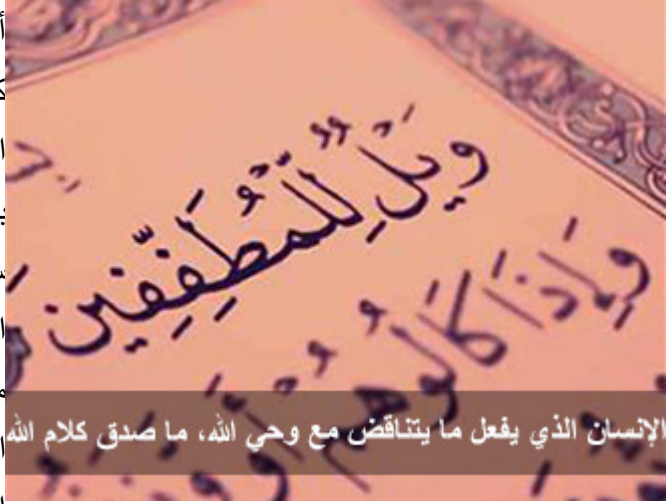 وَيْلٌ لِّلْمُطَفِّفِينَ
وَإِذَا كَالُوهُمْ أَو
الإنسان الذي يفعل ما يتناقض مع وحي الله، ما صدق كلام الله